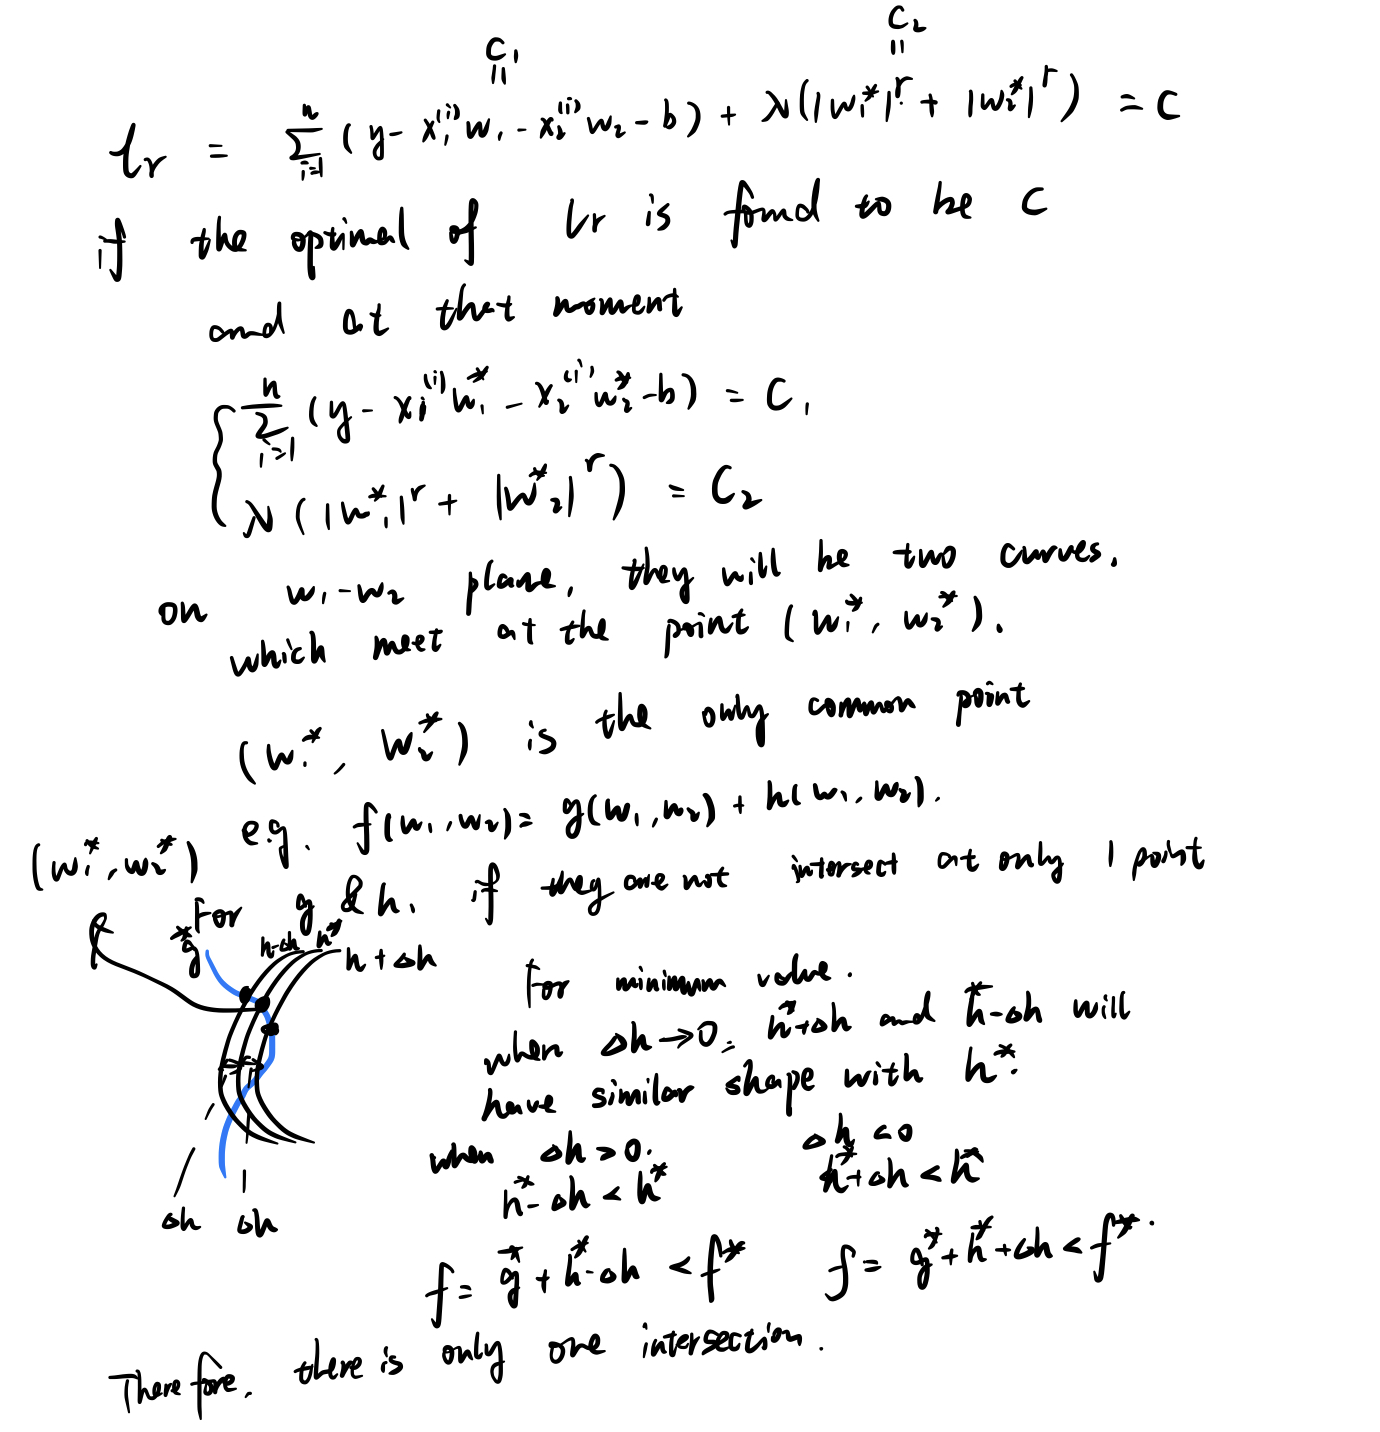 C₁ C₂
|| ||
lr = Σ_{i=1}^{n} (y - x₁⁽ⁱ⁾w₁ - x₂⁽ⁱ⁾w₂ - b) + λ(|w₁*|ʳ + |w₂*|ʳ) = C
if the optimal of lr is found to be C
and at that moment
{ Σ_{i=1}^{n} (y - x₁⁽ⁱ⁾w₁* - x₂⁽ⁱ⁾w₂* - b) = C₁
λ(|w₁*|ʳ + |w₂*|ʳ) = C₂
on w₁-w₂ plane, they will be two curves.
which meet at the point (w₁*, w₂*).
(w₁*, w₂*) is the only common point
e.g. f(w₁, w₂) = g(w₁, w₂) + h(w₁, w₂).
(w₁*, w₂*)
For g & h, if they are not intersect at only 1 point
g* h-Δh h* h+Δh
For minimum value.
when Δh→0, h*+Δh and h*-Δh will
have similar shape with h*.
when Δh>0. Δh<0
h*-Δh < h* h*+Δh < h*
Δh Δh
f = g* + h*-Δh < f* f = g* + h* + Δh < f*.
Therefore, there is only one intersection.